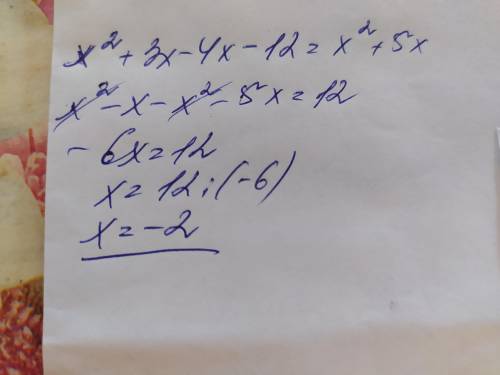 x² + 3x - 4x - 12 = x² + 5x
x² - x - x² - 5x = 12
- 6x = 12
x = 12 : (-6)
x = -2